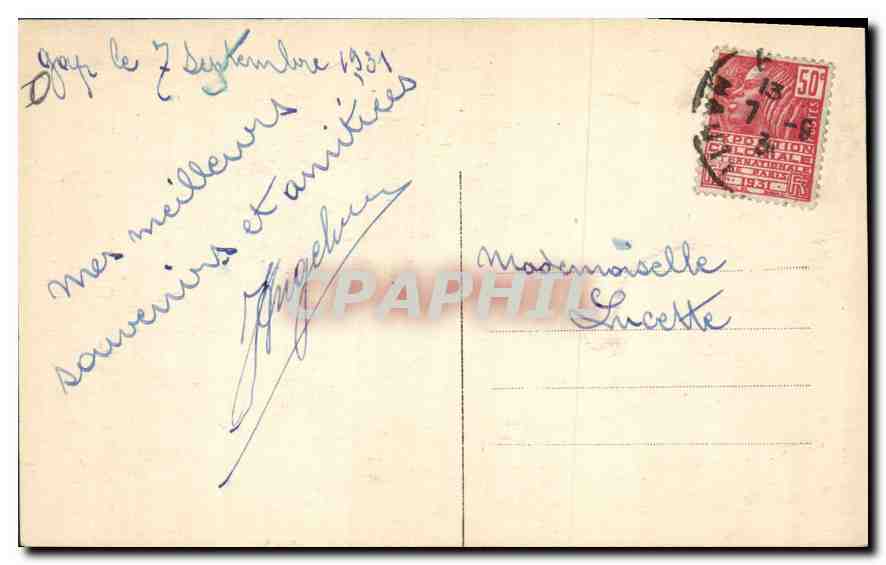 Gap le 7 Septembre 1931
mes meilleurs
souvenirs et amitiées
Mademoiselle
Lucette
50c
POSTES
EXPOSITION
COLONIALE
INTERNATIONALE
PARIS
1931 RF
13
7 -9
31
CPAPHIL